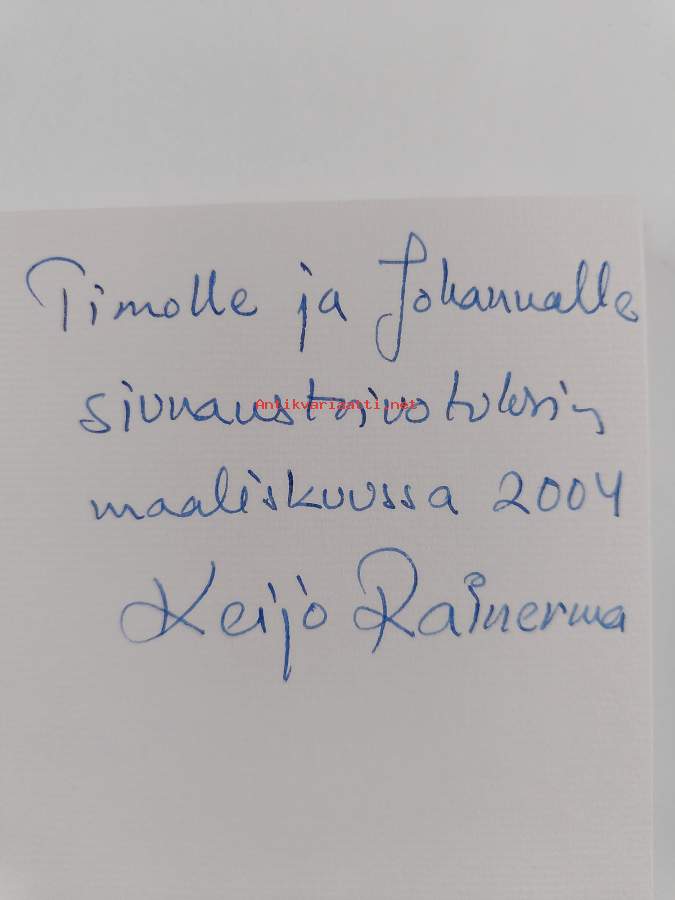 Timolle ja Johannalle
siunaustoivotuksin
Antikvariaatti.net
maaliskuussa 2004
Keijo Rainerma